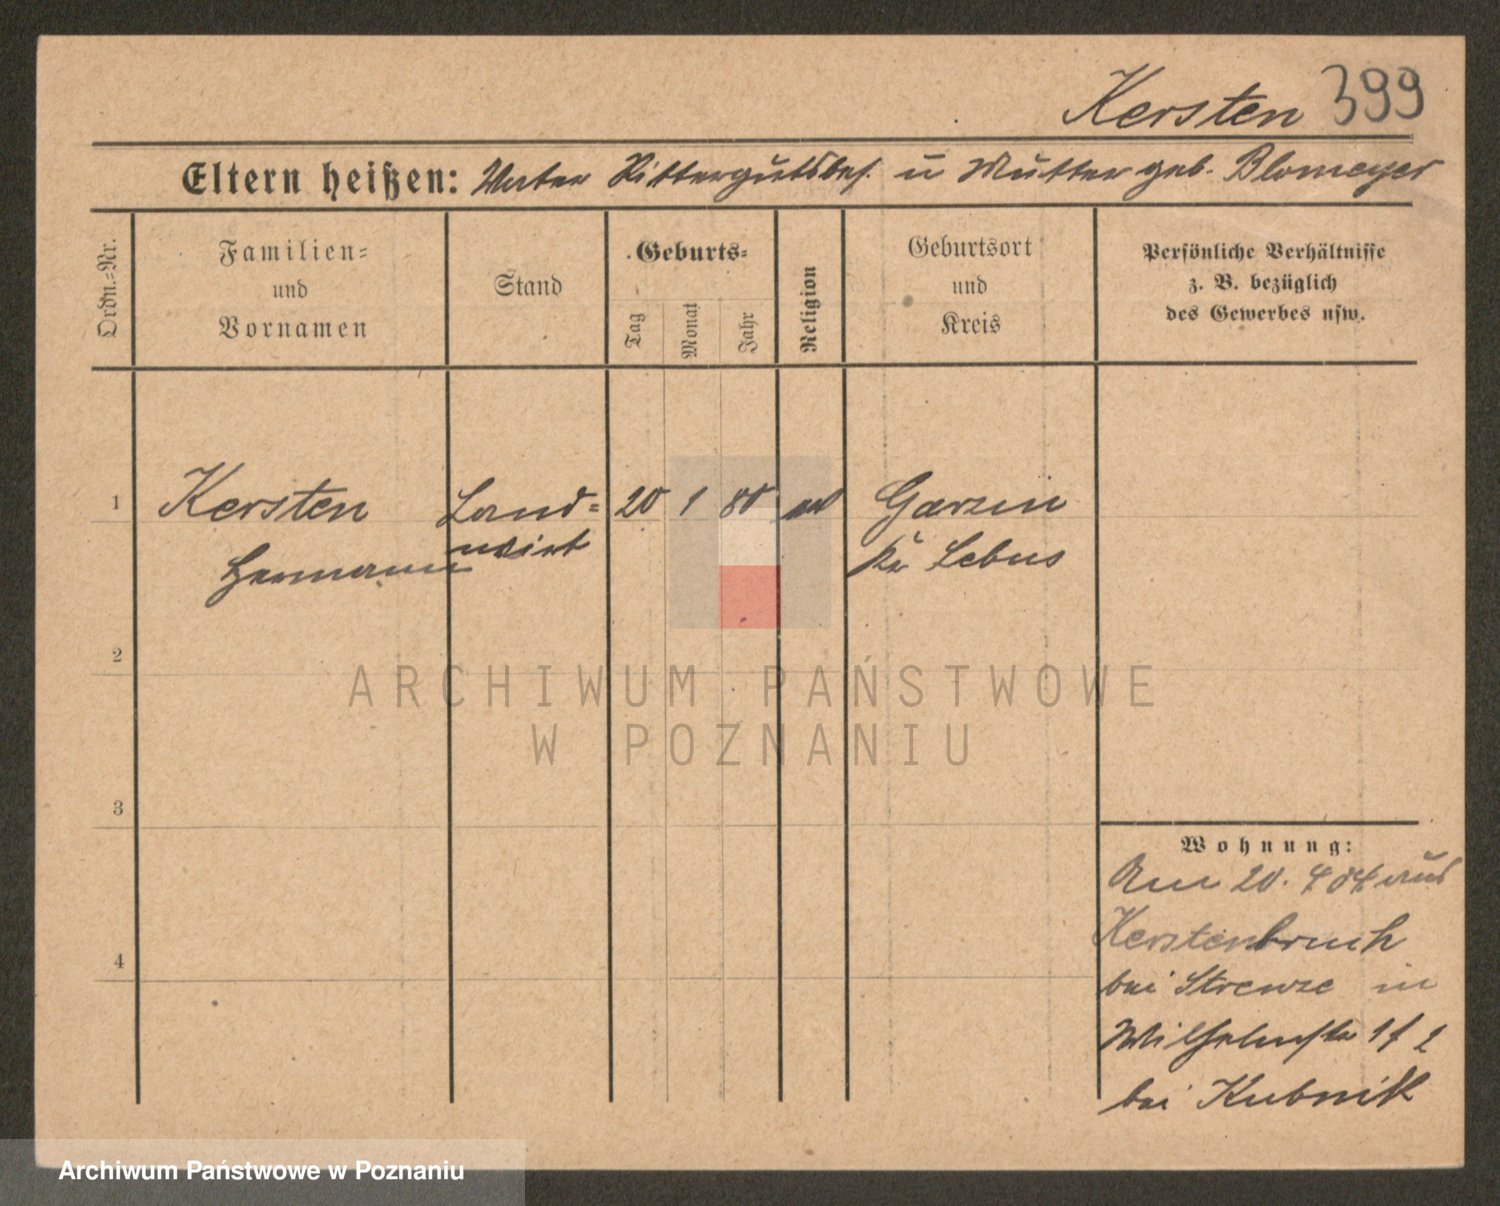 Kersten 399
Eltern heißen: Vater Rittergutsbes. u Mutter geb. Blomeyer
Ordn.=Nr.
Familien=
und
Vornamen
Stand
Geburts=
Tag
Monat
Jahr
Religion
Geburtsort
und
Kreis
Persönliche Verhältnisse
z. B. bezüglich
des Gewerbes usw.
1 Kersten Land= 20 1 80 Garzin
Hermann wirt Kr Lebus
2
3
4
Wohnung:
Am 20. 4 04 aus
Kerstenbruch
bei Strenze in
Wilhelmstr
bei Kubnik
ARCHIWUM PAŃSTWOWE
W POZNANIU
Archiwum Państwowe w Poznaniu